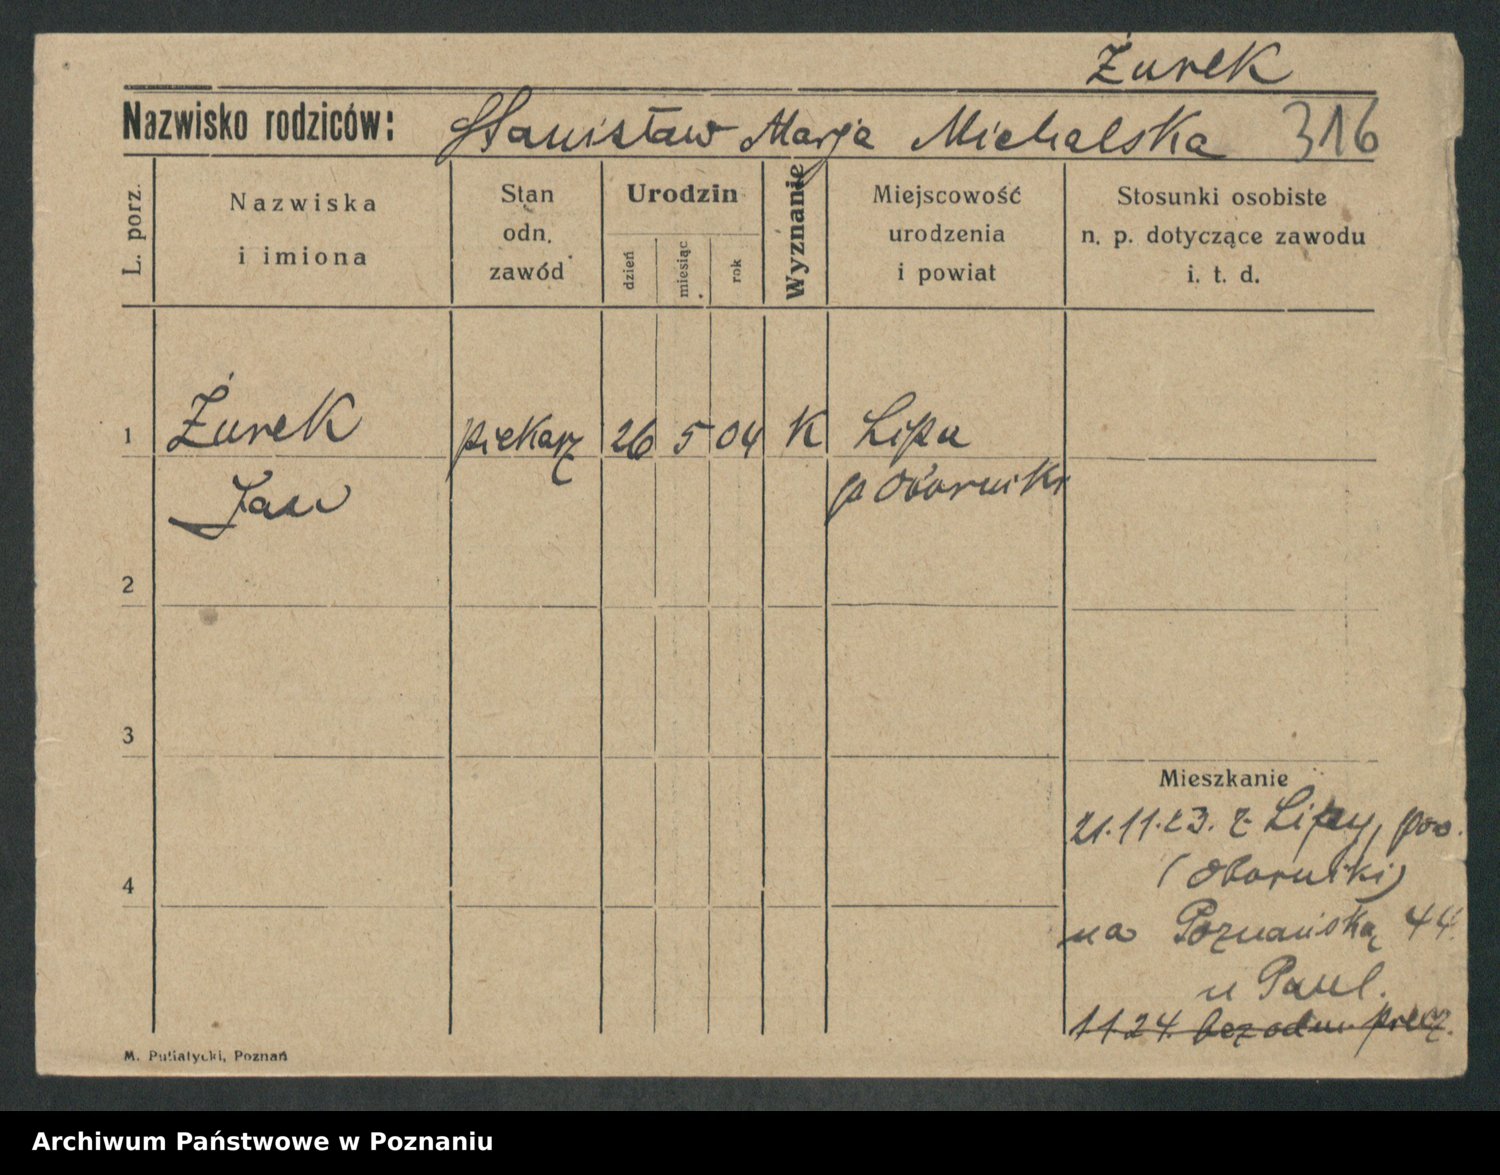 Żurek
Nazwisko rodziców: Stanisław Marja Michalska 316
L. porz.
Nazwiska
i imiona
Stan
odn.
zawód
Urodzin
dzień
miesiąc
rok
Wyznanie
Miejscowość
urodzenia
i powiat
Stosunki osobiste
n. p. dotyczące zawodu
i. t. d.
1 Żurek piekarz 26 5 04 K Lipa
Jan p Oborniki
2
3
Mieszkanie
21.11.23. z Lipy, pow.
4 (Oborniki)
na Poznańską 44.
u Paul.
1.1.24. bez odm. precz.
M. Putiatycki, Poznań
Archiwum Państwowe w Poznaniu